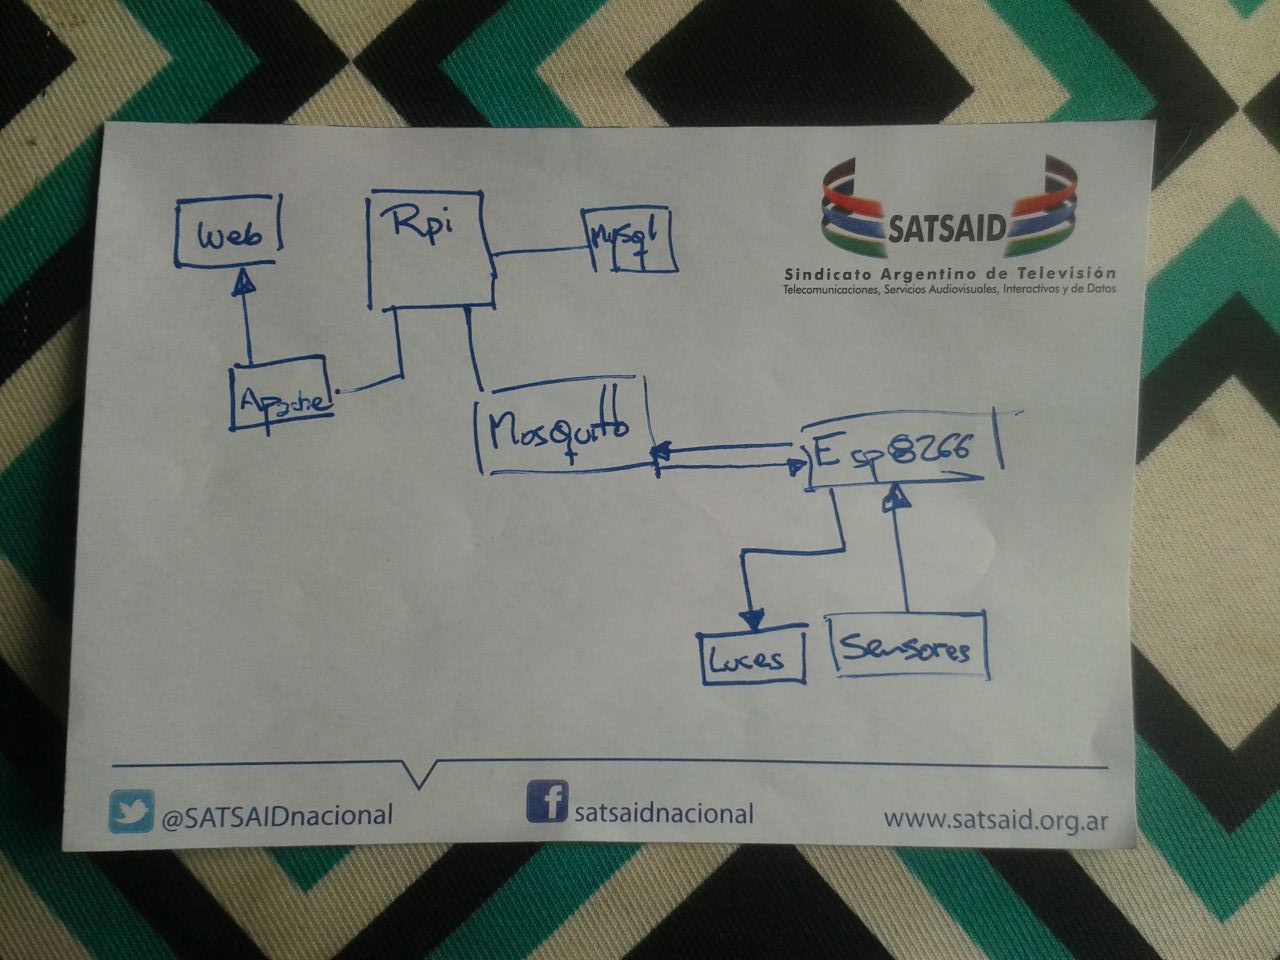 Web
Rpi
MySql
SATSAID
Sindicato Argentino de Televisión
Telecomunicaciones, Servicios Audiovisuales, Interactivos y de Datos
Apache
Mosquitto
Esp8266
Luces
Sensores
@SATSAIDnacional
satsaidnacional
www.satsaid.org.ar